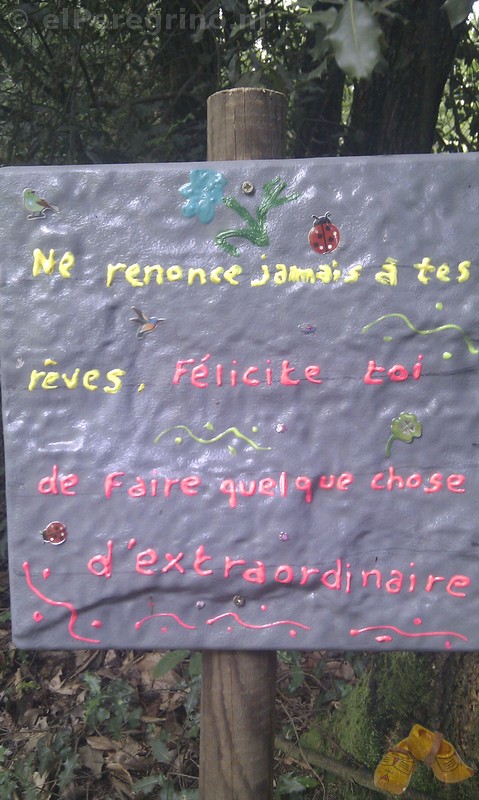 © elPeregrino.nl
Ne renonce jamais à tes
rêves. Félicite toi
de Faire quelque chose
d'extraordinaire